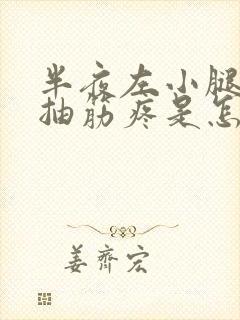 半夜左小腿
抽筋疼是怎
姜齐宏